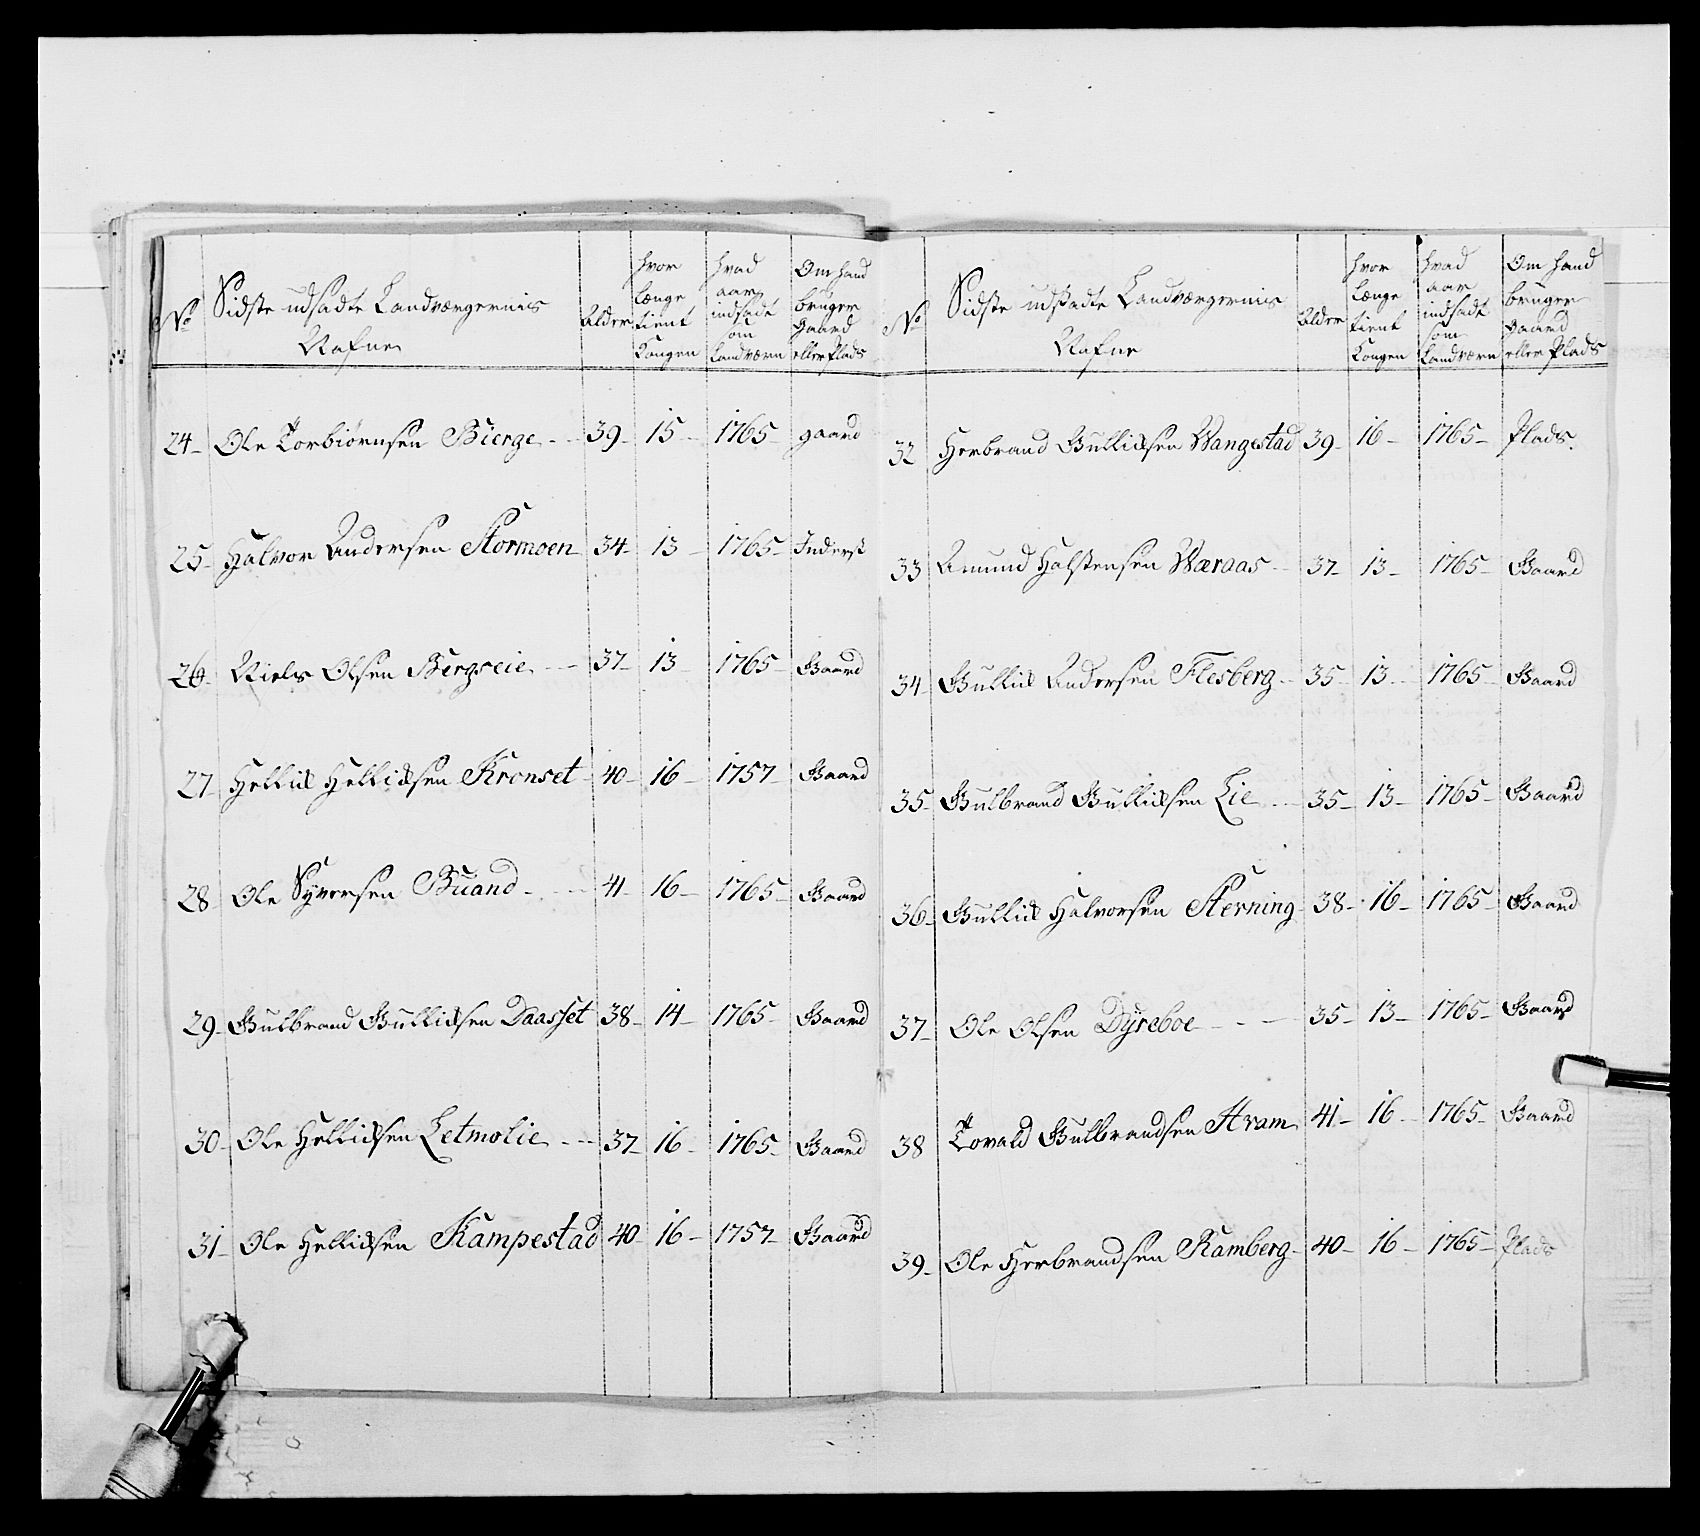 No Sidste udsadte Landværgernis Nafne Alder hvor længe tient Kongen hvad aar indsadt som Landværn Om hand bruger gaard eller Plads
24 Ole Torbiørnsen Bierge 39 15 1765 gaard
25 Halvor Andersen Stormoen 34 13 1765 Inderst
26 Niels Olsen Bergseie 37 13 1765 Gaard
27 Hellik Hellicksen Kronset 40 16 1757 Gaard
28 Ole Syversen Buand 41 16 1765 Gaard
29 Gulbrand Gullicksen Daasset 38 14 1765 Gaard
30 Ole Hellicksen Letmolie 37 16 1765 Gaard
31 Ole Hellicksen Kampestad 40 16 1757 Gaard
No Sidste udsadte Landværgernis Nafne Alder hvor længe tient Kongen hvad aar indsadt som Landværn Om hand bruger gaard eller Plads
32 Herbrand Gullicksen Wangestad 39 16 1765 Plads
33 Amund Halstensen Wæraas 37 13 1765 Gaard
34 Gullik Andersen Flesberg 35 13 1765 Gaard
35 Gulbrand Gullicksen Lie 35 13 1765 Gaard
36 Gullik Halvorsen Sterning 38 16 1765 Gaard
37 Ole Olsen Dÿreboe 35 13 1765 Gaard
38 Torald Gulbrandsen Hram 41 16 1765 Gaard
39 Ole Herbrandsen Ramberg 40 16 1765 Plads